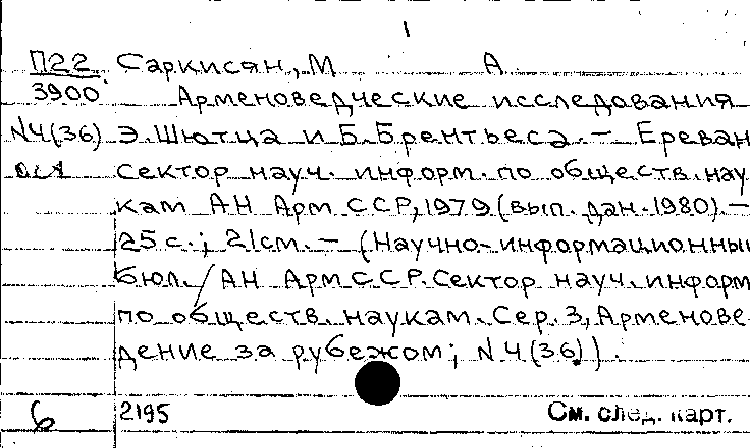 1
П22 Саркисян, М А
3900 Арменоведческие исследования
N4(36) Э.Шютца и Б.Брентьеса. – Ереван
сектор науч. информ. по обществ. нау
кам АН Арм ССР, 1979 (вып. дан. 1980). –
25 с.; 21см. – (Научно-информационный
бюл. / АН Арм ССР. Сектор науч. информ
по обществ. наукам. Сер. 3, Арменове
дение за рубежом; N 4 (36)).
6 2195 См. след. карт.